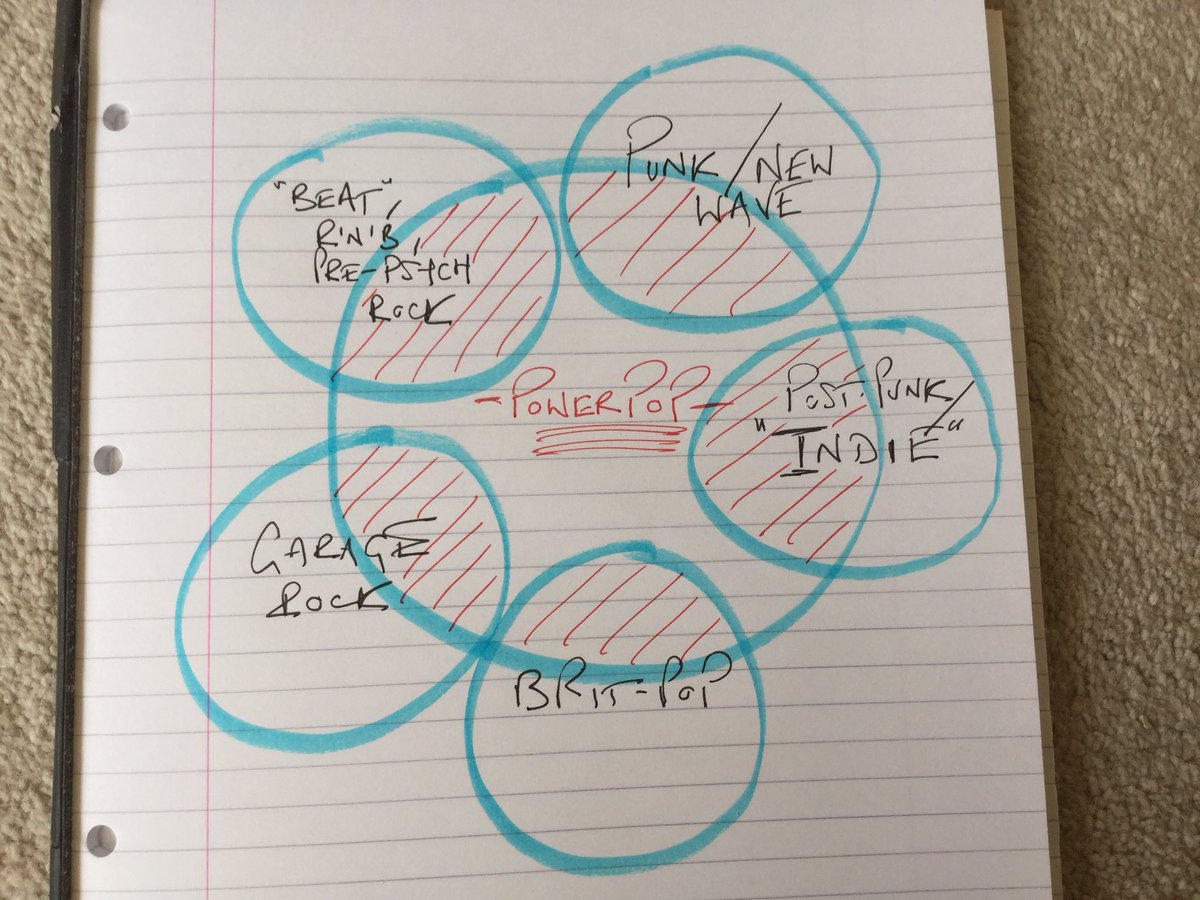 "BEAT",
R'N'B,
PRE-PSYCH
ROCK
PUNK/NEW
WAVE
-POWERPOP-
POST-PUNK/
"INDIE"
GARAGE
ROCK
BRIT-POP